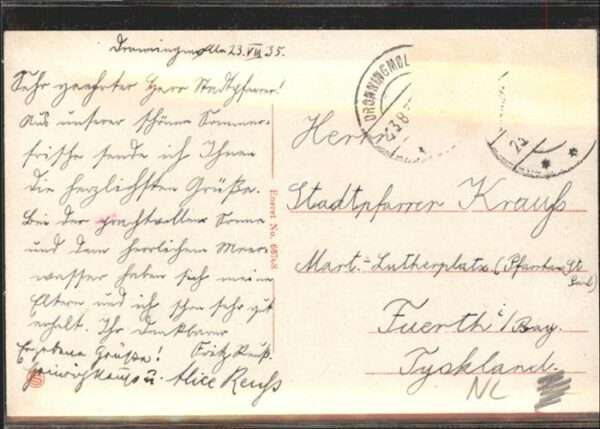 Dronningmølle 23.VIII 35.
Sehr geehrter Herr Stadtpfarrer!
Aus unserer schönen Sommer-
frische sende ich Ihnen
die herzlichsten Grüße.
Bei der prachtvollen Sonne
und dem herrlichen Meer-
wasser haben sich meine
Eltern und ich schon sehr gut
erholt. Ihr dankbarer
Fritz Reuß.
Ergebene Grüße!
u. Alice Reuß
Eneret No. 68748
DRONNINGMOL
23.8
Herrn
Stadtpfarrer Krauß
Mart.-Lutherplatz (Pfarrhaus St
Paul)
Fuerth i/Bay.
Tyskland.
NL